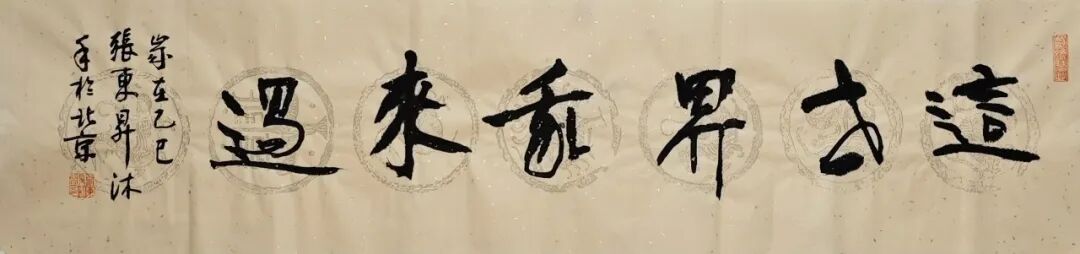 這世界我來過
歲在乙巳
張東昇沐
手於北京